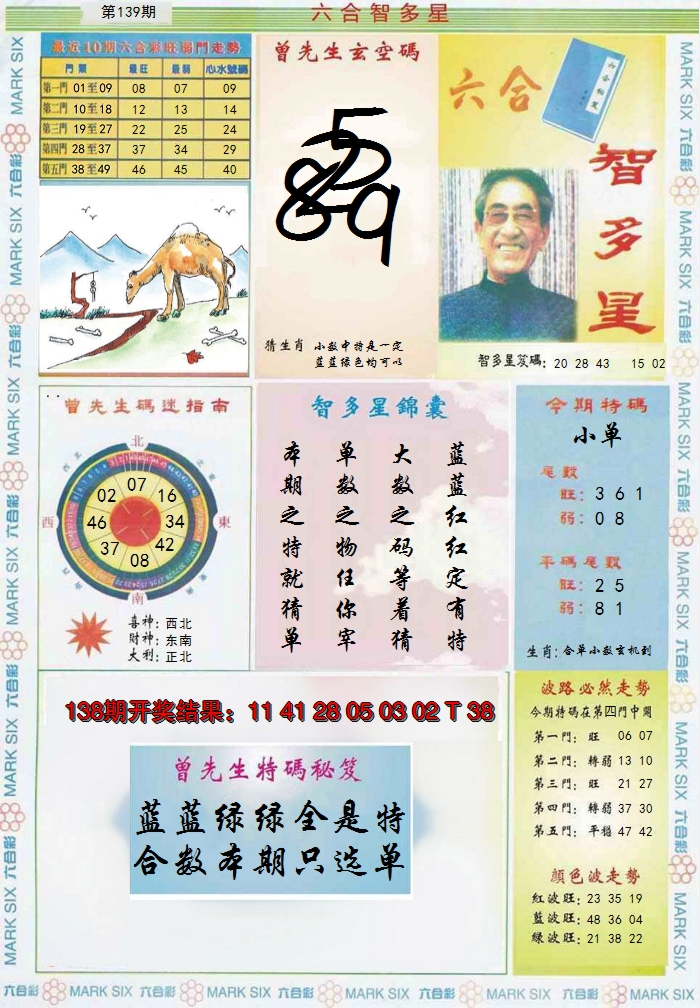 第139期
六合智多星
最近10期六合彩旺弱門走勢
門票 最旺 最弱 心水號碼
第一門 01至09 08 07 09
第二門 10至18 12 13 14
第三門 19至27 22 25 24
第四門 28至37 37 34 29
第五門 38至49 46 45 40
曾先生玄空碼
589
猜生肖 小数中特是一定
蓝蓝绿色均可以
六合
智多星
智多星笈碼: 20 28 43 15 02
曾先生碼迷指南
北
西北
北東
西
東
南
07
02 16
46 34
37 42
08
喜神: 西北
財神: 东南
大利: 正北
智多星錦囊
本期之特就猜单
单数之物任你宰
大数之码等着猜
蓝蓝红红定有特
今期特碼
小单
尾數
旺: 3 6 1
弱: 0 8
平碼尾數
旺: 2 5
弱: 8 1
生肖: 合单小数玄机到
138期开奖结果: 11 41 28 05 03 02 T 38
曾先生特碼秘笈
蓝蓝绿绿全是特
合数本期只选单
波路必然走勢
今期特碼在第四門中開
第一門: 旺 06 07
第二門: 轉弱 13 10
第三門: 旺 21 27
第四門: 轉弱 37 30
第五門: 平穩 47 42
顏色波走勢
紅波旺: 23 35 19
藍波旺: 48 36 04
綠波旺: 21 38 22
MARK SIX 六合彩